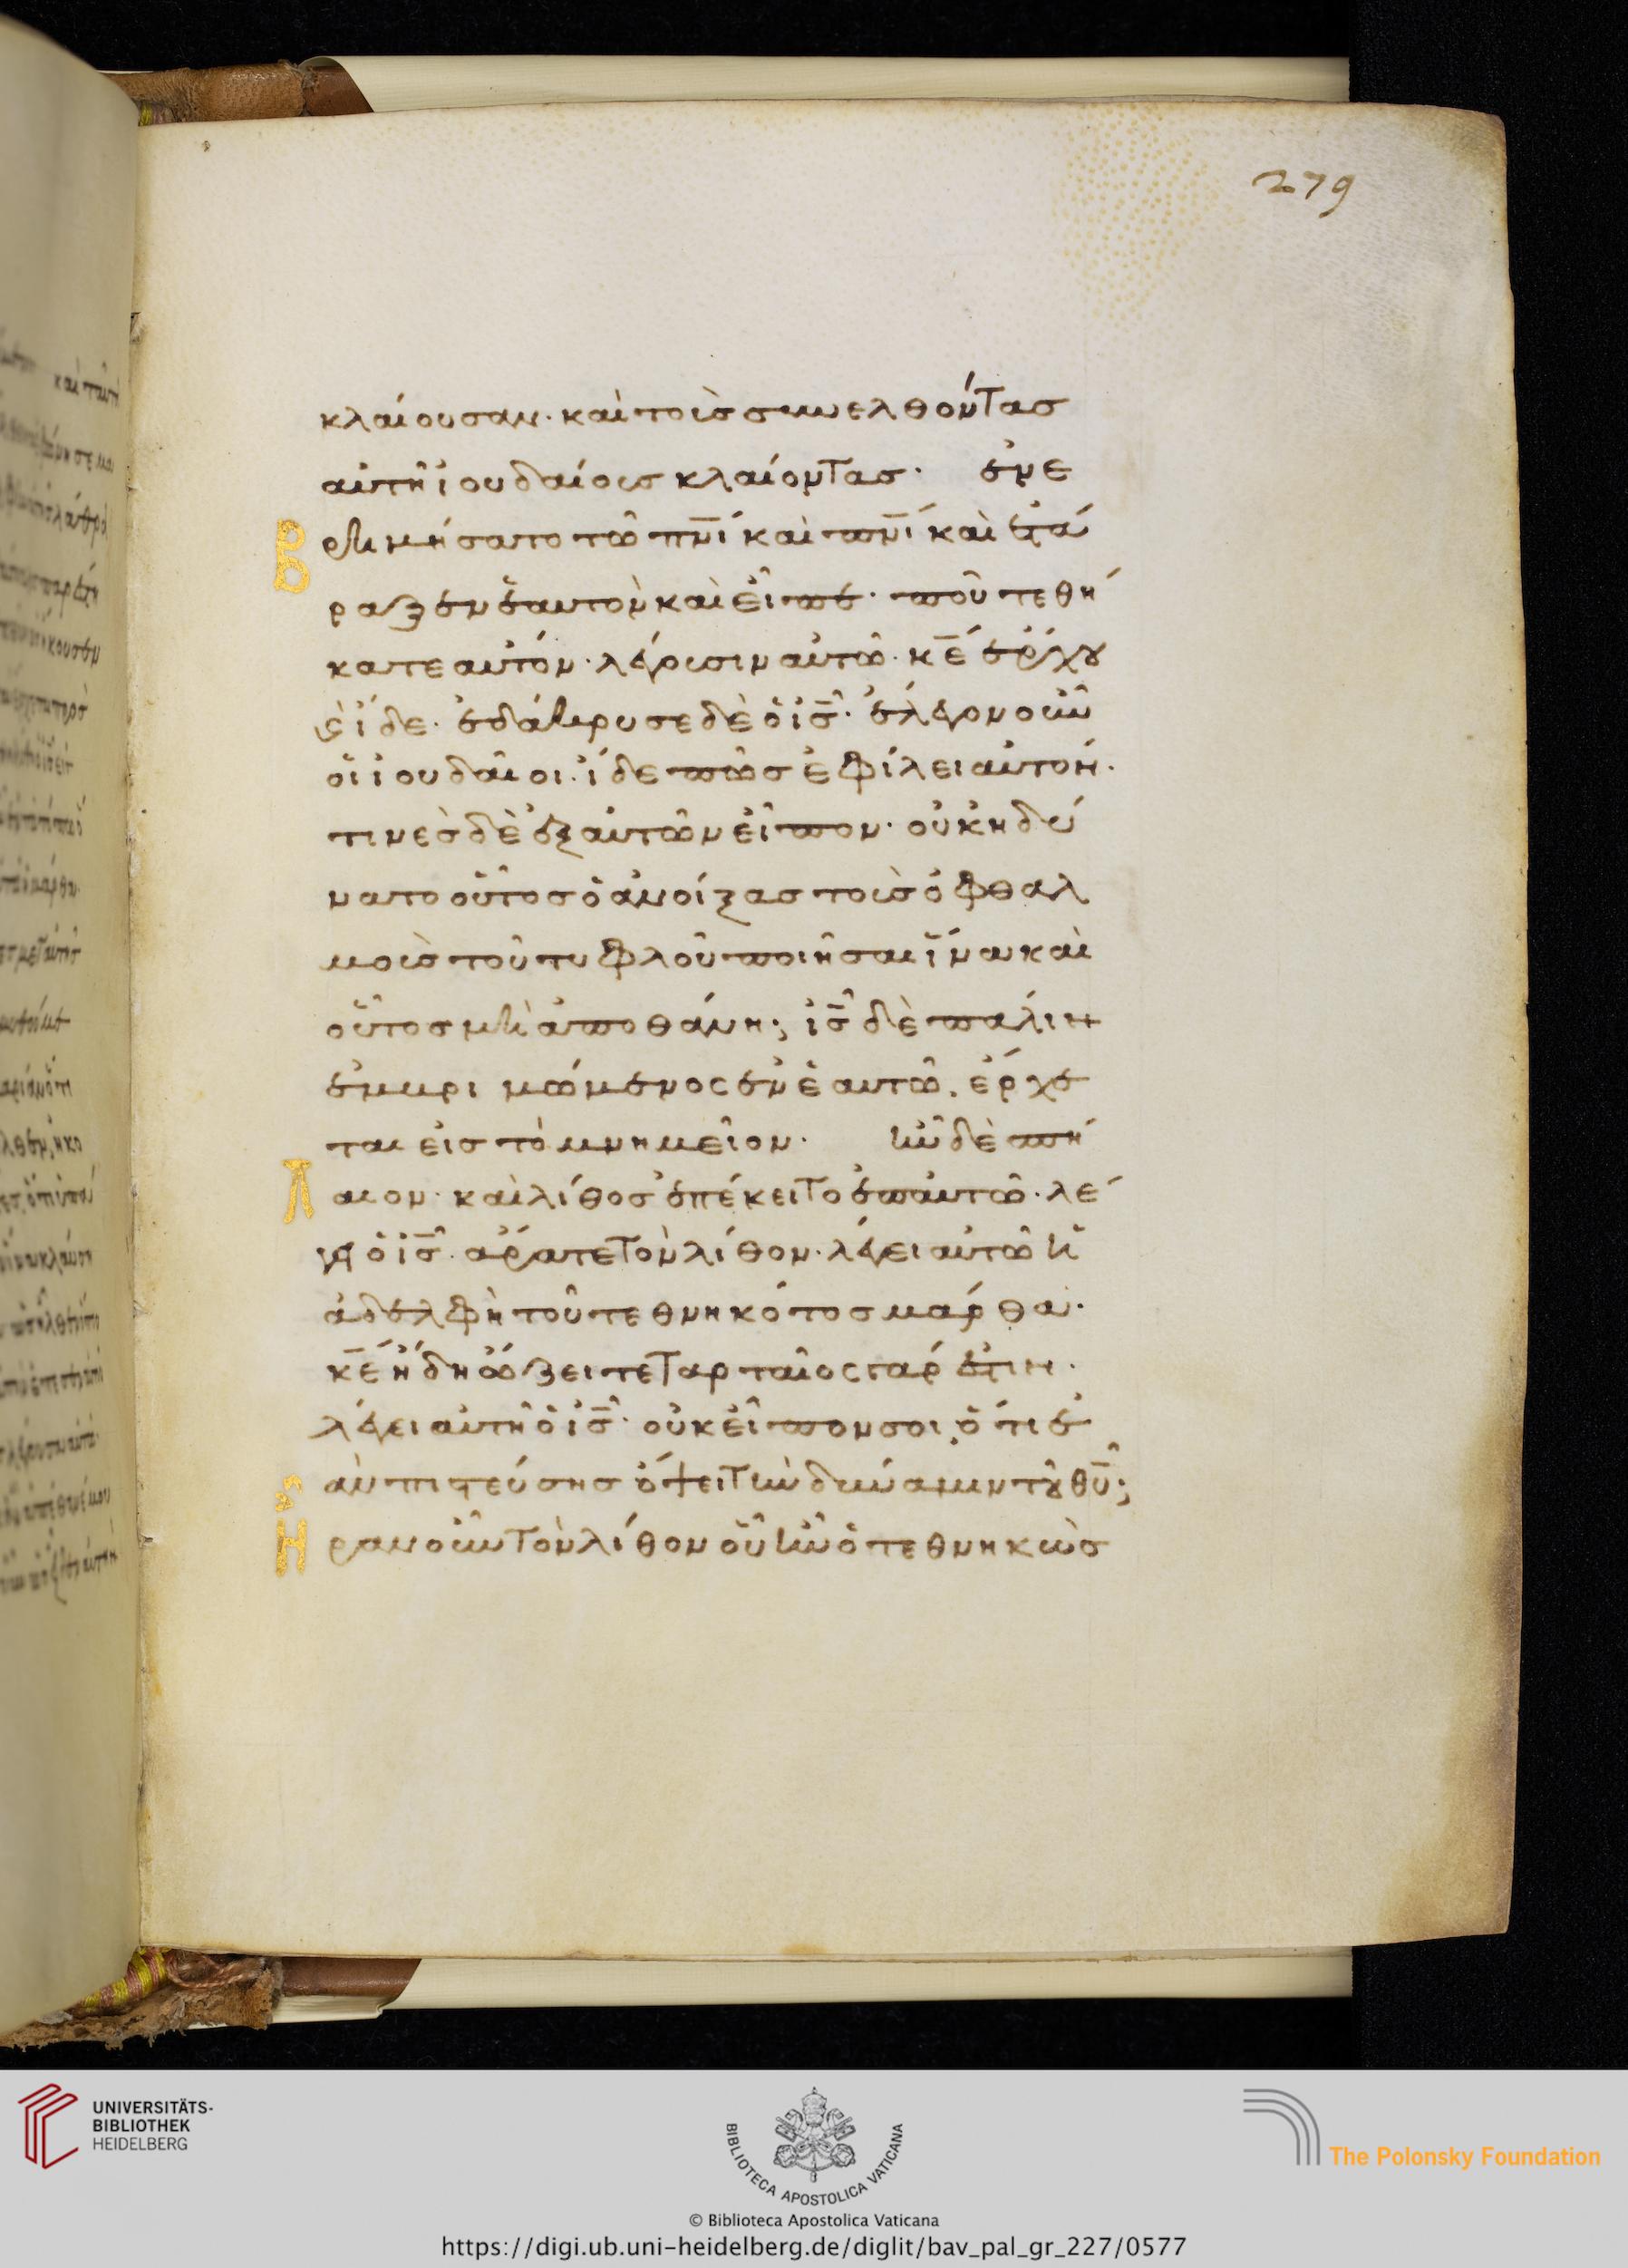 279
κλαίουσαν· καὶ τοὺσ συνελθόντασ
αὐτῆ ἰουδαίουσ κλαίοντασ· ἐνε
Βριμήσατο τῶ πνί καὶ πνί καὶ ἐτά
ραξεν ἑαυτὸν καὶ εἶπε· ποῦ τεθή
κατε αὐτόν· λέγουσιν αὐτῶ· κε ἔρχου
ϛ ἴδε· ἐδάκρυσε δὲ ὁ ισ· ἔλεγον οὖν
οἱ ἰουδαῖοι· ἴδε πῶσ ἐφίλει αὐτόν·
τινὲσ δὲ ἐξ αὐτῶν εἶπον· οὐκ ἠδύ
νατο οὗτοσ ὁ ἀνοίξασ τοὺσ ὀφθαλ
μοὺσ τοῦ τυφλοῦ ποιῆσαι ἵνα καὶ
οὗτοσ μὴ ἀποθάνη; ισ δὲ πάλιν
ἐμβριμώμενοσ ἐν ἑαυτῶ, ἔρχε
ται εἰσ τὸ μνημεῖον· ἦν δὲ σπή
Λαιον· καὶ λίθοσ ἐπέκειτο ἐπ αὐτῶ· λέ
γει ὁ ισ· ἄρατε τὸν λίθον· λέγει αὐτῶ ἡ
ἀδελφὴ τοῦ τεθνηκότοσ μάρθα·
κε ἤδη ὄζει τεταρταῖοσ γάρ ἐστιν·
λέγει αὐτῆ ὁ ισ· οὐκ εἶπον σοι, ὅτι ἐ
ὰν πιστεύσησ ὄψει τὴν δύναμιν τοῦ θυ;
Ἦραν οὖν τὸν λίθον οὗ ἦν ὁ τεθνηκὼσ
UNIVERSITÄTS-
BIBLIOTHEK
HEIDELBERG
BIBLIOTECA APOSTOLICA VATICANA
The Polonsky Foundation
© Biblioteca Apostolica Vaticana
https://digi.ub.uni-heidelberg.de/diglit/bav_pal_gr_227/0577